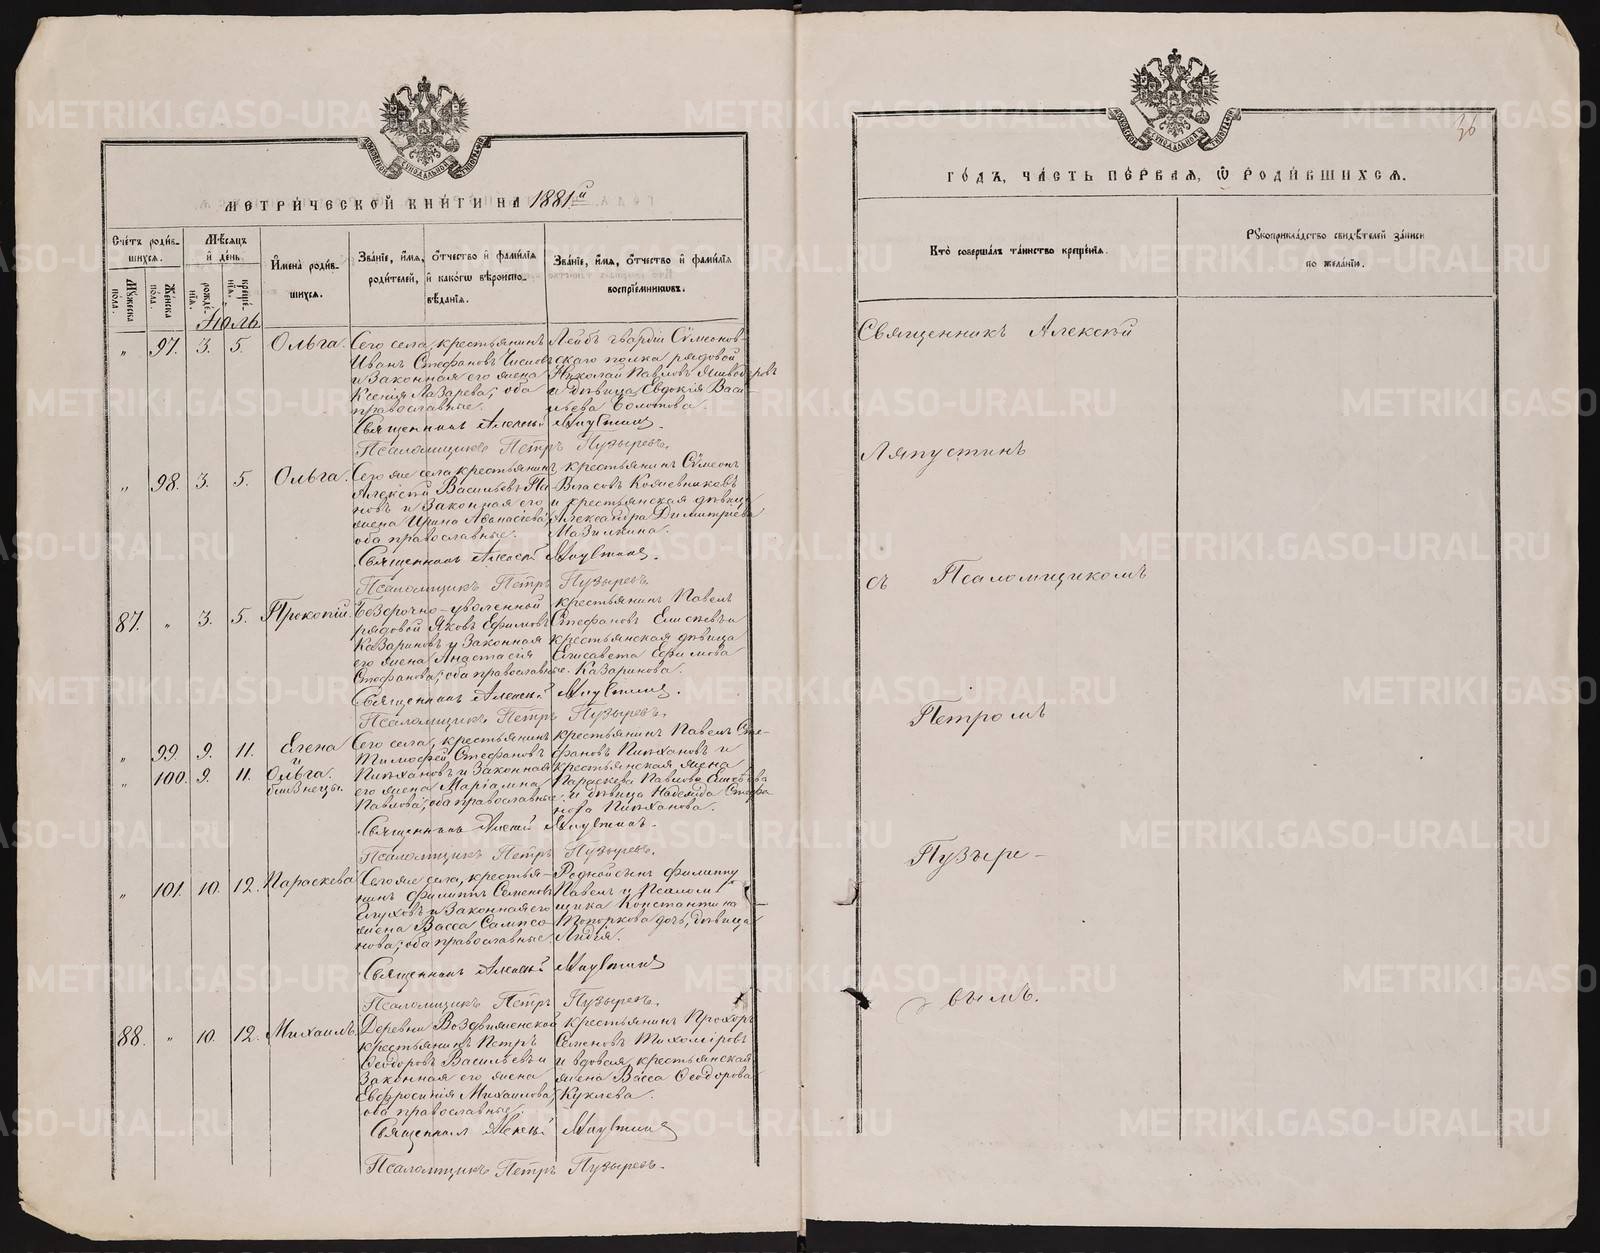 МЕТРИЧЕСКОЙ КНИГИ НА 1881й
Счетъ родив-
шихся.
Мужеска пола.
Женска пола.
Мѣсяцъ и день.
рожде-
нія.
креще-
нія.
Имена родив-
шихся.
Званіе, имя, отчество и фамилія
родителей, и какого вѣроиспо-
вѣданія.
Званіе, имя, отчество и фамилія
воспріемниковъ.
Іюль
" 97. 3. 5. Ольга.
Сего села, крестьянинъ
Иванъ Стефановъ
и законная его жена
Ксенія Лазарева; оба
православные.
Лейбъ гвардіи Сѵмеонов-
скаго полка рядовой
Николай Павловъ
и дѣвица Евдокія Васи-
льева Болотова.
Священникъ Алексій Ляпустинъ.
Псаломщикъ Петръ Пузыревъ.
" 98. 3. 5. Ольга.
Сего же села крестьянинъ
Алексій Васильевъ Па-
новъ и законная его
жена Ирина Аѳанасіева;
оба православные.
крестьянинъ Сѵмеонъ
Власовъ Кожевниковъ
и крестьянская дѣвица
Александра Димитріева
Мазилкина.
Священникъ Алексій Ляпустинъ.
Псаломщикъ Петръ Пузыревъ.
87. " 3. 5. Прокопій.
Безсрочно-уволенной
рядовой Яковъ Ефимовъ
Казариновъ и законная
его жена Анастасія
Стефанова; оба православные.
крестьянинъ Павелъ
Стефановъ Елисѣевъ и
крестьянская дѣвица
Елисавета Ефимова
Казаринова.
Священникъ Алексій Ляпустинъ.
Псаломщикъ Петръ Пузыревъ.
" 99. 9. 11. Елена
и
" 100. 9. 11. Ольга.
близнецы.
Сего села, крестьянинъ
Тимофей Стефановъ
Пинжановъ и законная
его жена Маріамна
Павлова; оба православные.
крестьянинъ Павелъ Сте-
фановъ Пинжановъ и
крестьянская жена
Параскева Павлова
и дѣвица Надежда Стефа-
нова Пинжанова.
Священникъ Алексій Ляпустинъ.
Псаломщикъ Петръ Пузыревъ.
" 101. 10. 12. Параскева
Сего же села, крестья-
нинъ Филиппъ Семеновъ
Глуховъ и законная его
жена Васса Сампсо-
нова; оба православные.
Родной сынъ Филиппу
Павелъ и Псалом-
щика Константина
Топоркова дочь, дѣвица
Лидія.
Священникъ Алексій Ляпустинъ
Псаломщикъ Петръ Пузыревъ.
88. " 10. 12. Михаилъ.
Деревни Воздвиженской
крестьянинъ Петръ
Ѳеодоровъ Васильевъ и
законная его жена
Евфросинія Михаилова;
оба православные.
крестьянинъ Прохоръ
Семеновъ Тихоміровъ
и вдовая крестьянская
жена Васса Ѳеодорова
Куклева.
Священникъ Алексій Ляпустинъ
Псаломщикъ Петръ Пузыревъ.
36
ГОДЪ, ЧАСТЬ ПЕРВАЯ, Ѡ РОДИВШИХСЯ.
Кто совершалъ таинство крещенія.
Рукоприкладство свидѣтелей записи
по желанію.
Священникъ Алексій
Ляпустинъ
съ Псаломщикомъ
Петромъ
Пузыре-
вымъ.
METRIKI.GASO-URAL.RU